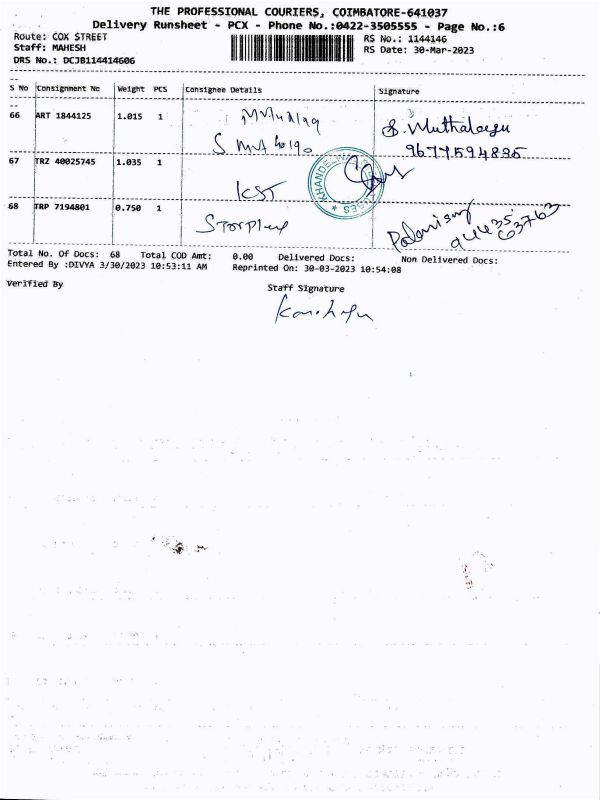 THE PROFESSIONAL COURIERS, COIMBATORE-641037
Delivery Runsheet - PCX - Phone No.:0422-3505555 - Page No.:6
Route: COX STREET RS No.: 1144146
Staff: MAHESH RS Date: 30-Mar-2023
DRS No.: DCJB114414606
S No Consignment No Weight PCS Consignee Details Signature
66 ART 1844125 1.015 1 S. Muthalagu
9677594835
67 TRZ 40025745 1.035 1 KST
KHANDELWAL
68 TRP 7194801 0.750 1
Total No. Of Docs: 68 Total COD Amt: 0.00 Delivered Docs: Non Delivered Docs:
Entered By :DIVYA 3/30/2023 10:53:11 AM Reprinted On: 30-03-2023 10:54:08
Verified By Staff Signature